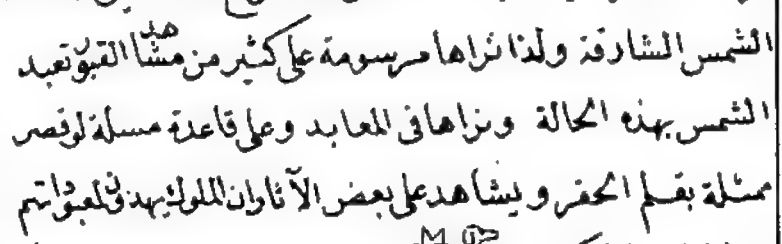 الشمس الشارقة ولذا نراها مرسومة على كثير من مشاهد القبور تعبد
الشمس بهذه الحالة ونراها فى المعابد وعلى قاعدة مسلة لوقصر
ممثلة بقلم الحفر ويشاهد على بعض الآثار ان الملوك يهدون لمعبوداتهم